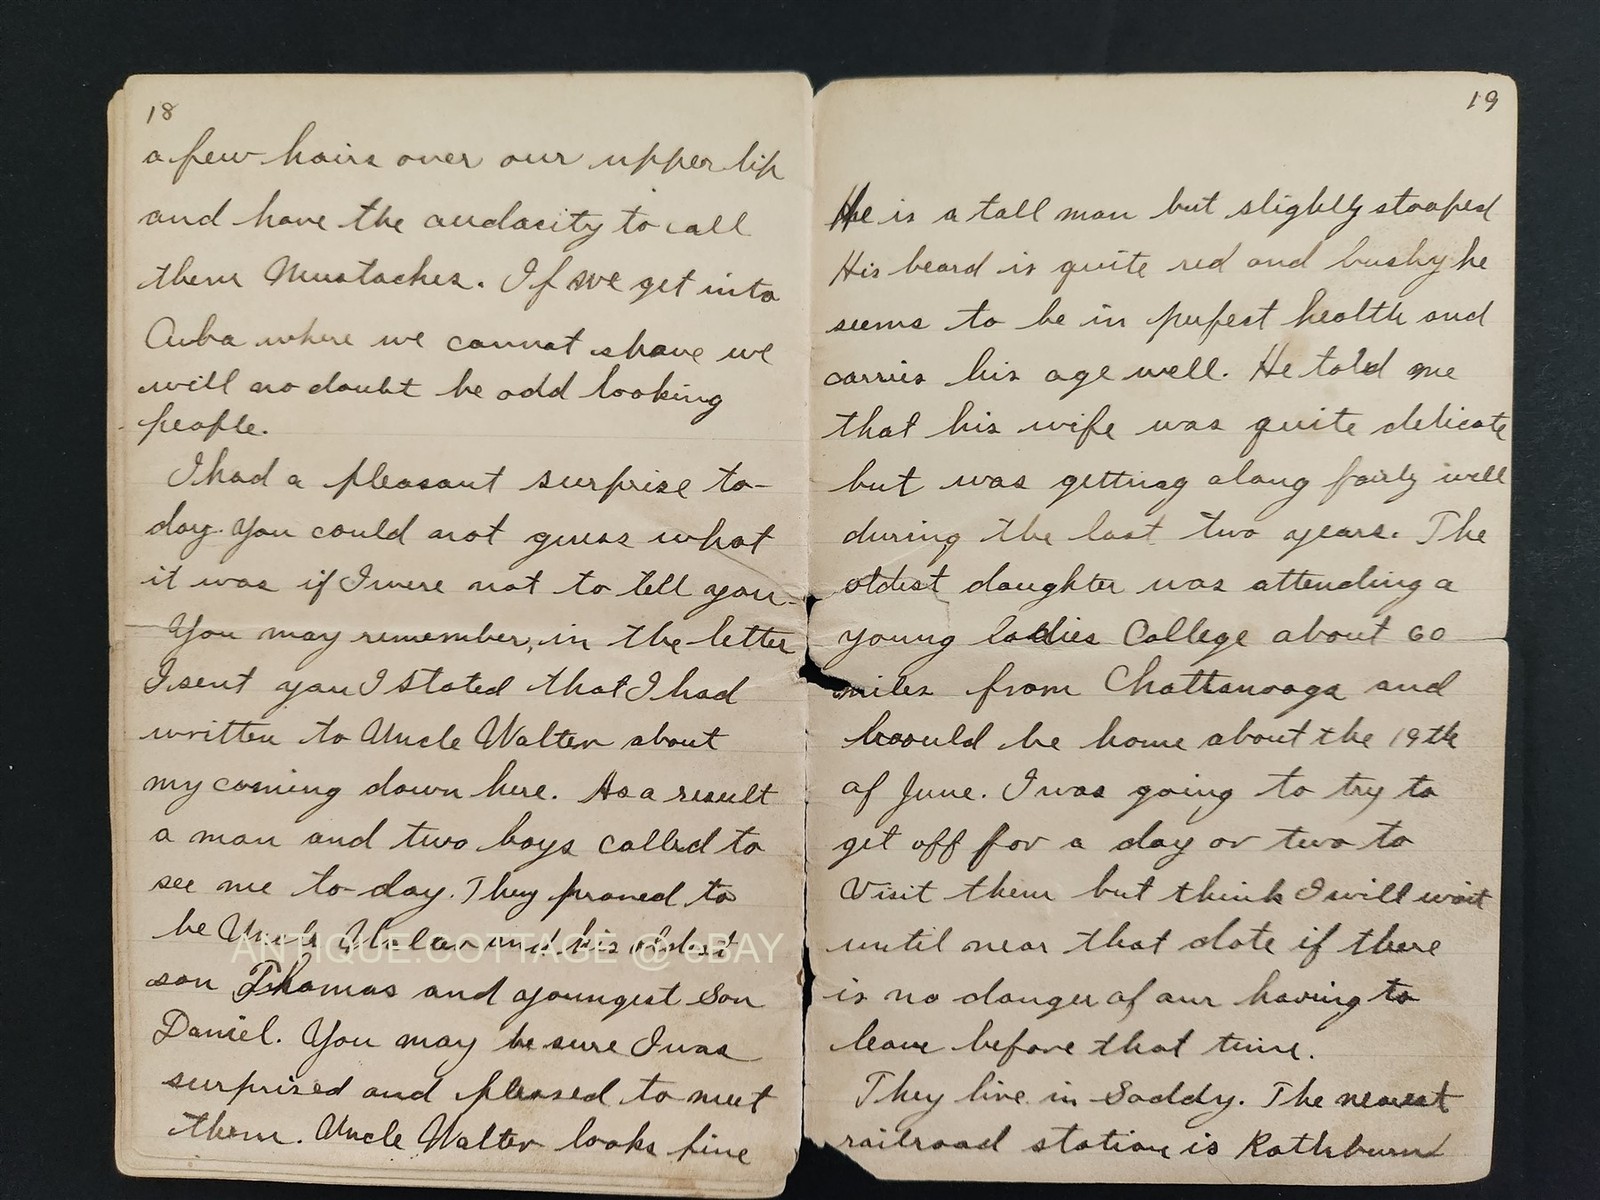 18
a few hairs over our upper lip
and have the audasity to call
them Mustaches. If we get into
Cuba where we cannot shave we
will no doubt be odd looking
people.
I had a pleasant surprise to-
day. You could not guess what
it was if I were not to tell you.
You may remember, in the letter
I sent you I stated that I had
written to Uncle Walter about
my coming down here. As a result
a man and two boys called to
see me to-day. They proved to
be Uncle Walter and his oldest
ANTIQUE.COTTAGE @ eBAY
son Thomas and youngest son
Daniel. You may be sure I was
surprised and pleased to meet
them. Uncle Walter looks fine
19
He is a tall man but slightly stooped
His beard is quite red and bushy he
seems to be in pufest health and
carries his age well. He told me
that his wife was quite delicate
but was getting along fairly well
during the last two years. The
oldest daughter was attending a
young ladies College about 60
miles from Chattanooga and
would be home about the 19th
of June. I was going to try to
get off for a day or two to
visit them but think I will wait
until near that date if there
is no danger of our having to
leave before that time.
They live in Soddy. The nearest
railroad station is Rathburn